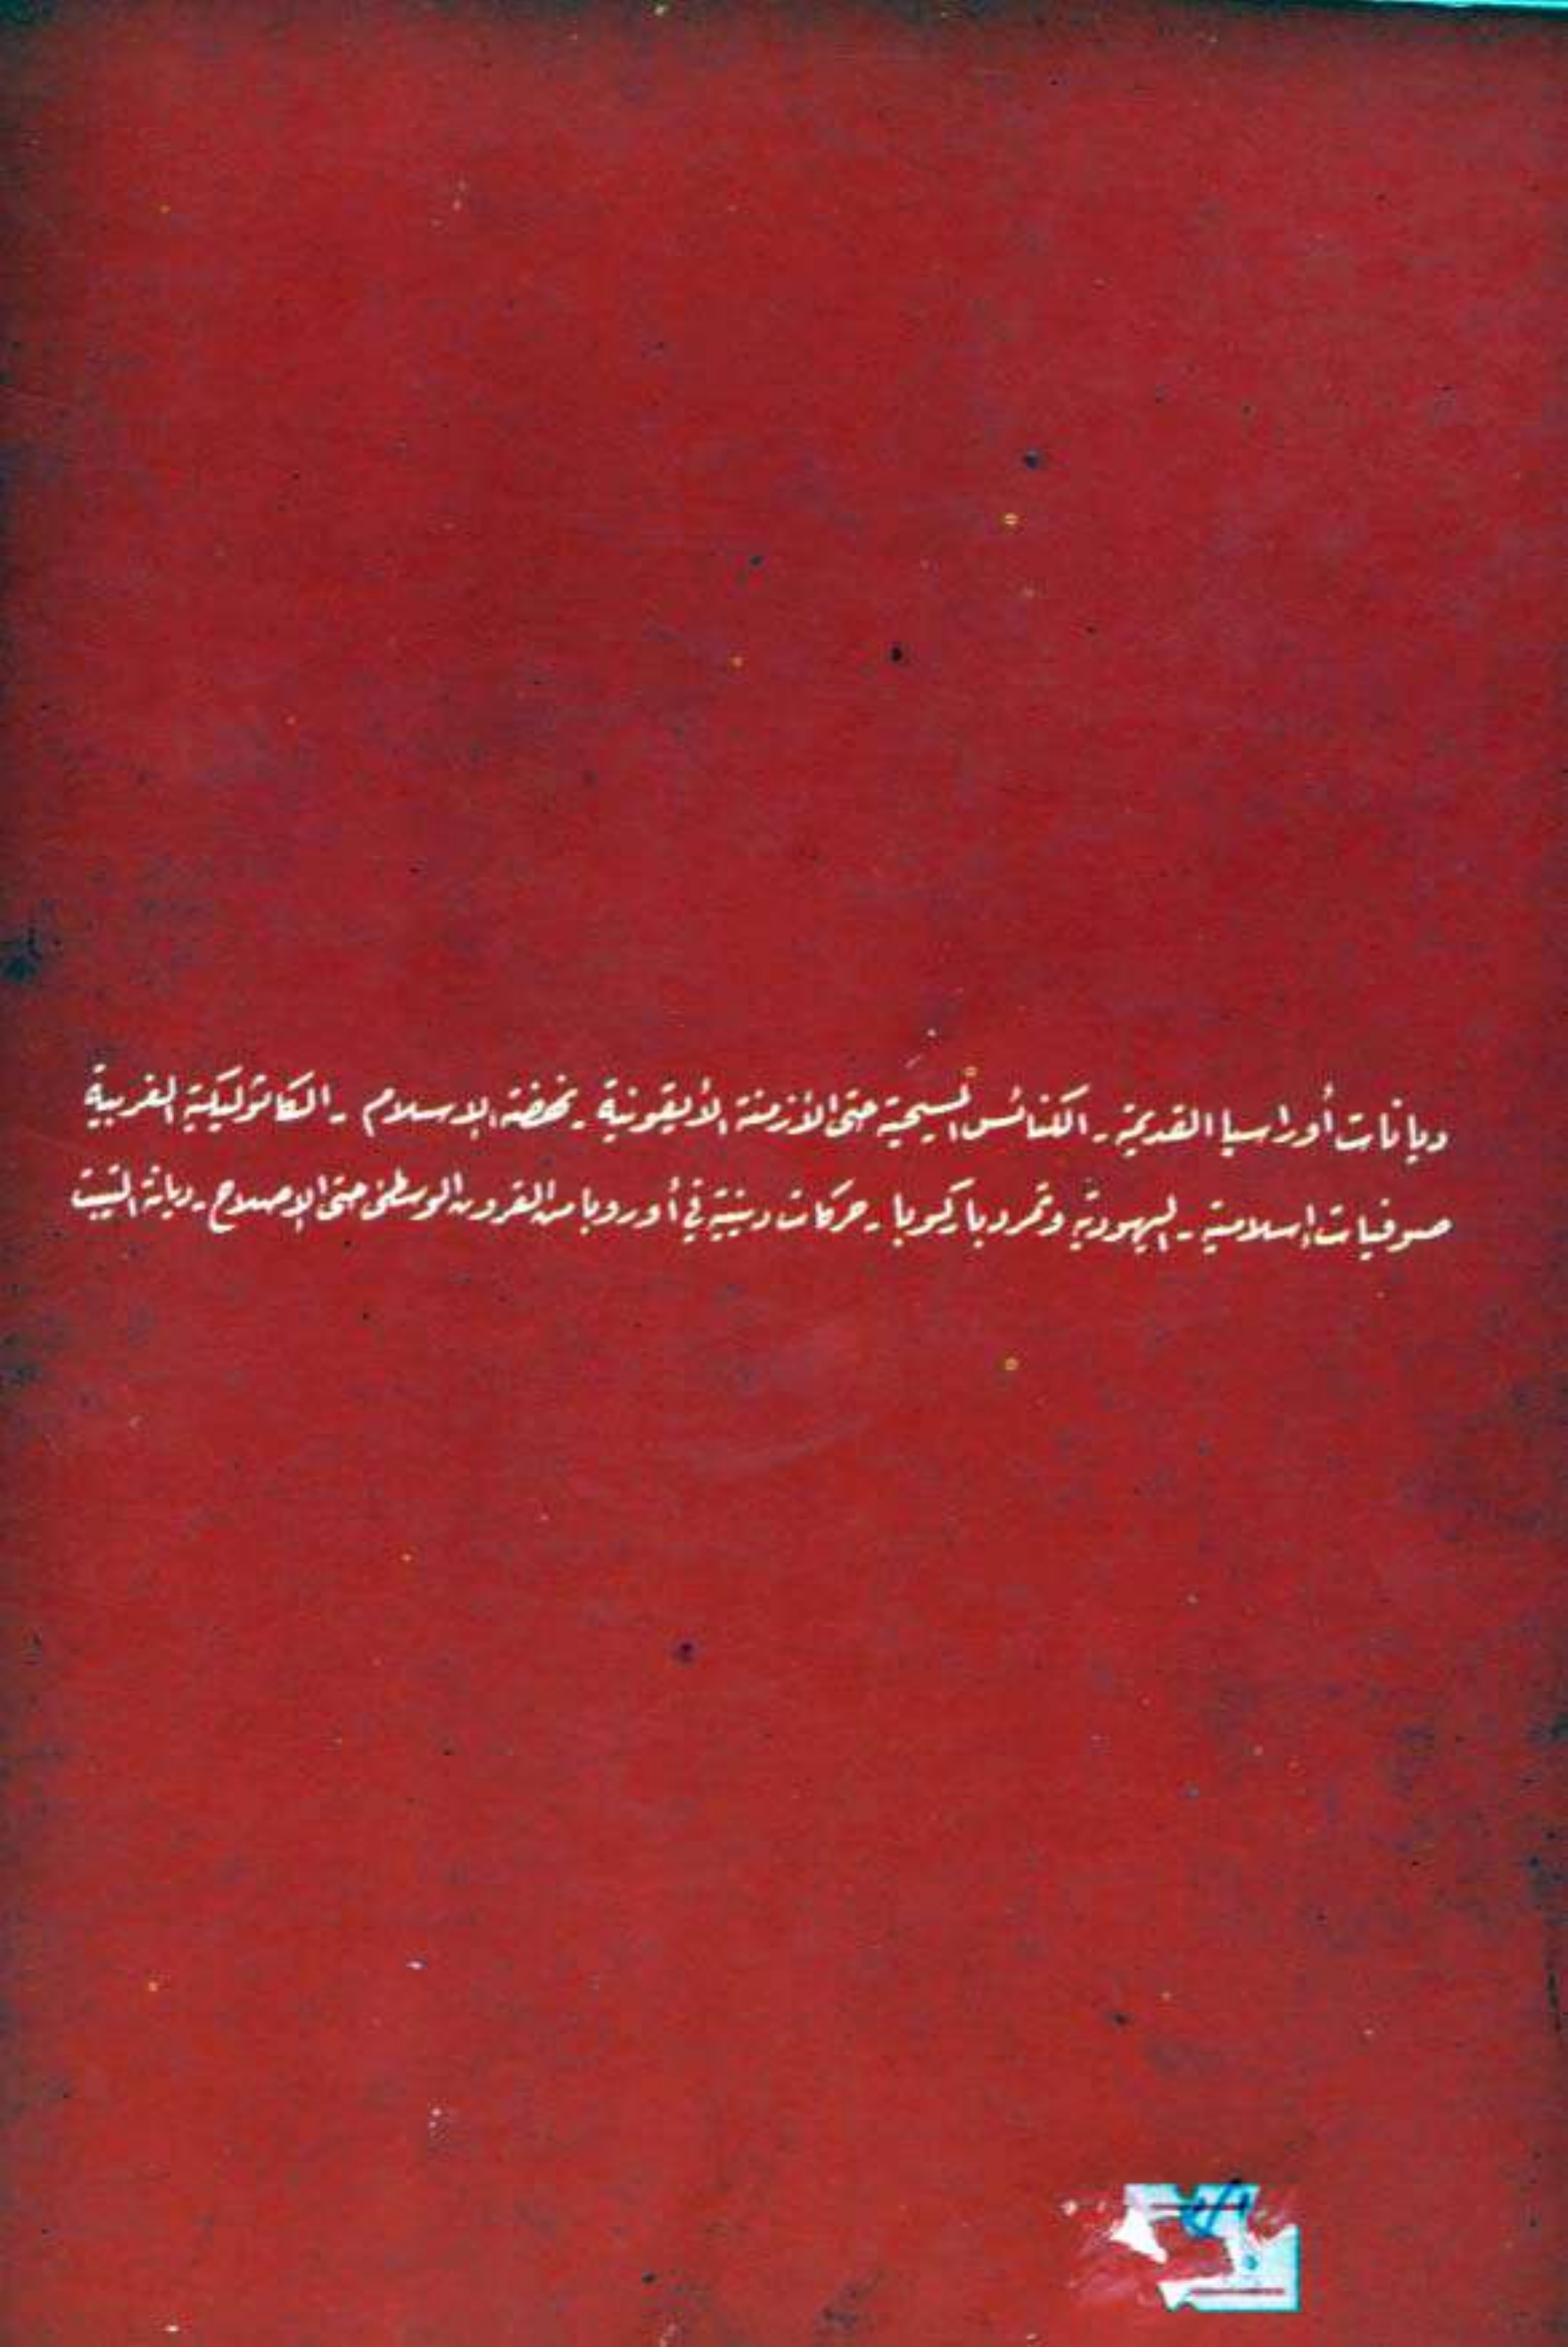 ديانات أوراسيا القديمة - الكنائس المسيحية حتى الأزمنة الأيقونية - نهضة الإسلام - الكاثوليكية الغربية
صوفيات إسلامية - اليهودية وتمرد باركوبا - حركات دينية في أوروبا من القرون الوسطى حتى الإصلاح - ديانة التيبت